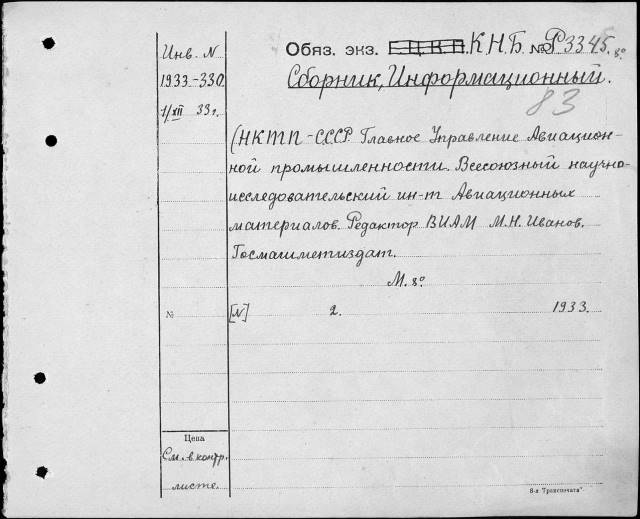 Инв. N
1933-330
1/XII 33г.
Обяз. экз. Г.Ц.К.П. К.Н.Б. № Р3345. 8°
Сборник, Информационный.
83
(НКТП-СССР. Главное Управление Авиацион-
ной промышленности. Всесоюзный научно-
исследовательский ин-т Авиационных
материалов. Редактор ВИАМ М.Н. Иванов.
Госмашметиздат.
М. 8°
№ [N] 2. 1933.
Цена
См. в контр.
листе.
8-я "Транспечати"